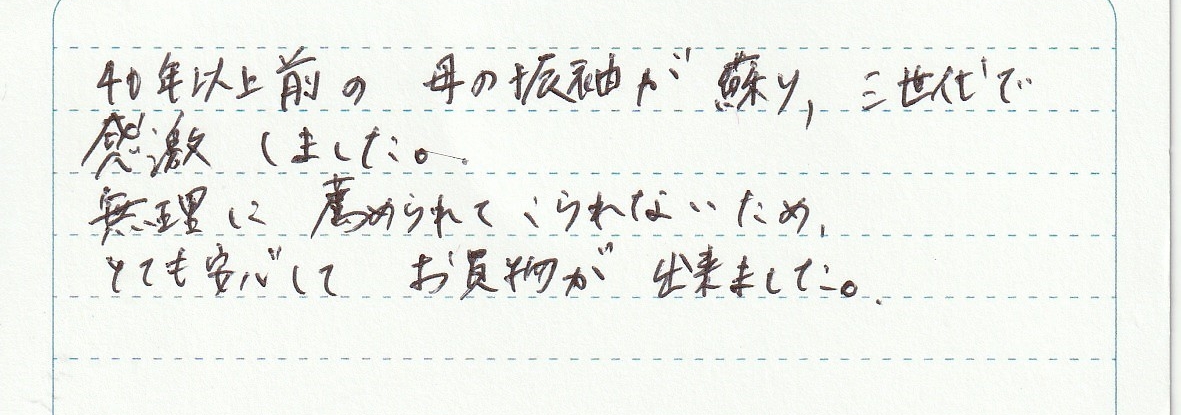 40年以上前の 母の振袖が 蘇り, 三世代で
感激 しました。
無理に 薦められてこられないため,
とても安心して お買物が 出来ました。